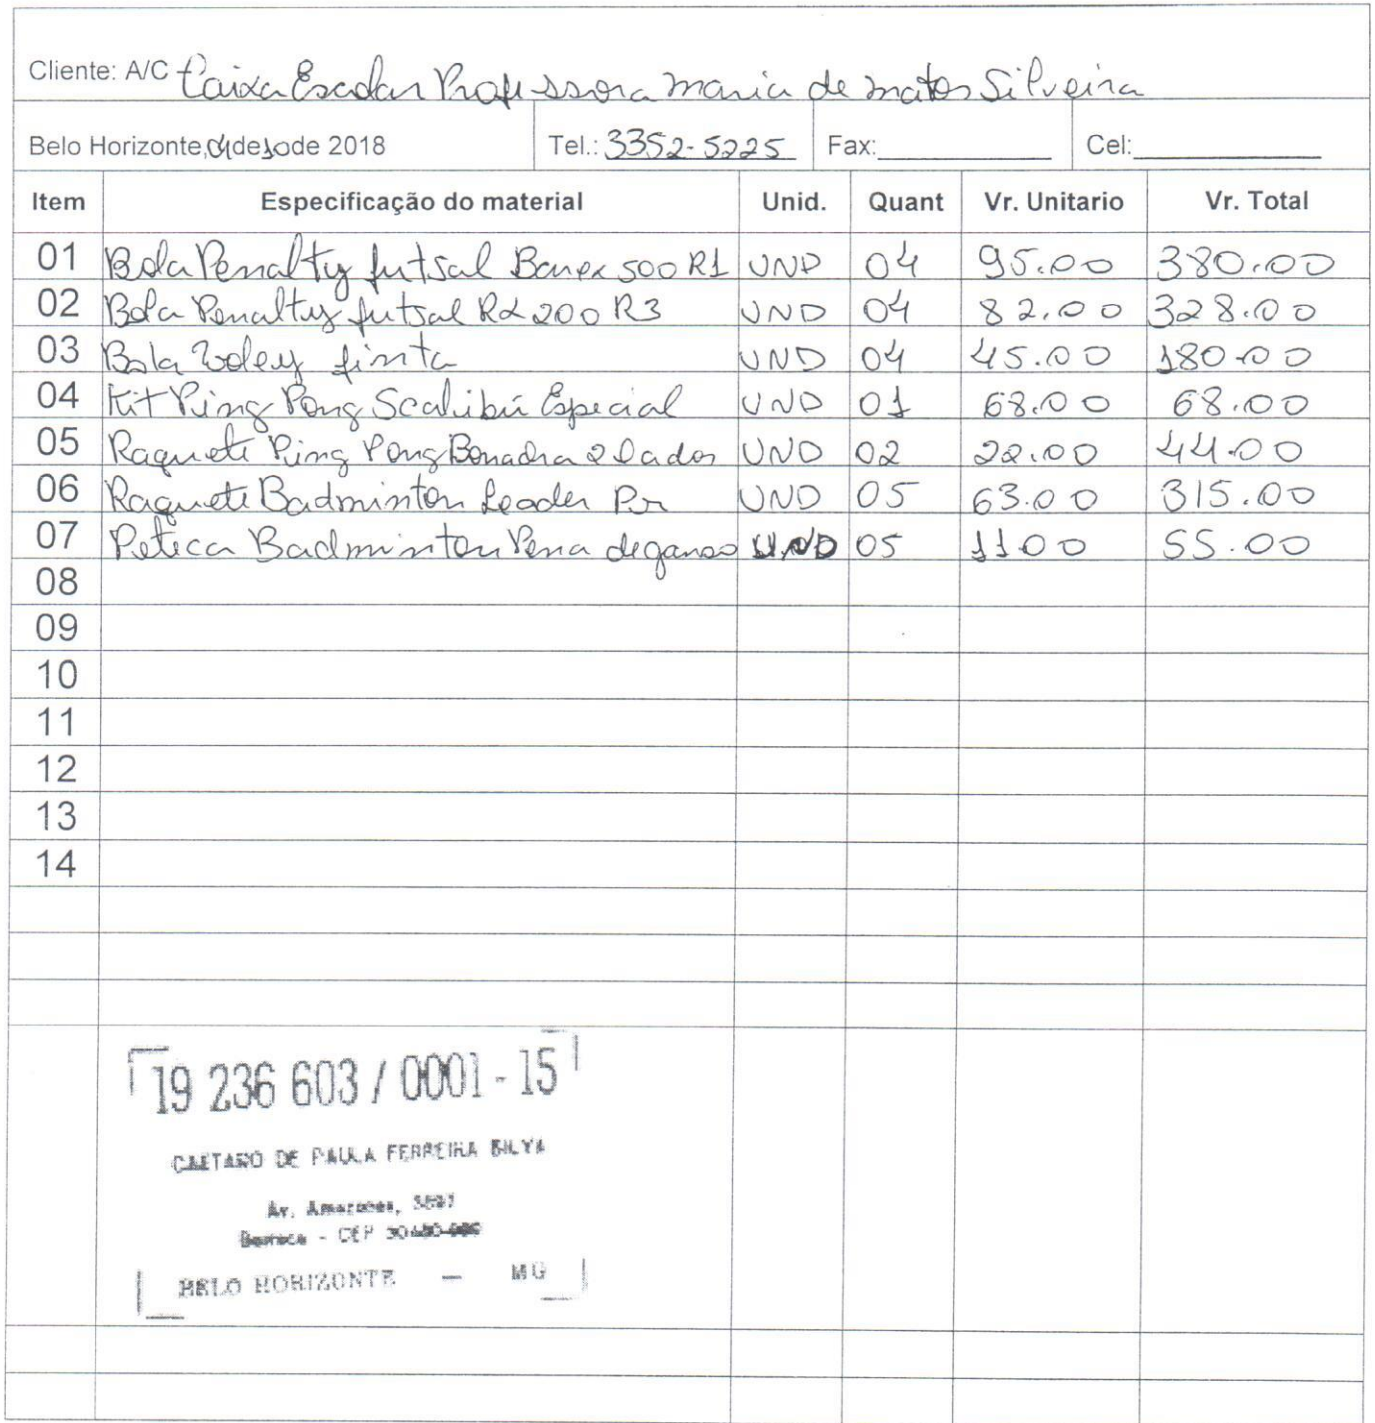 Cliente: A/C Caixa Escolar Professora Maria de Matos Silveira
Belo Horizonte, 04 de 10 de 2018 Tel.: 3352-5225 Fax: Cel:
Item Especificação do material Unid. Quant Vr. Unitario Vr. Total
01 Bola Penalty futsal 500 R1 UND 04 95.00 380.00
02 Bola Penalty futsal RX 200 R3 UND 04 82.00 328.00
03 Bola Voley finta UND 04 45.00 180.00
04 Kit Ping Pong Especial UND 01 68.00 68.00
05 Raquete Ping Pong 2 lados UND 02 22.00 44.00
06 Raquete Badminton Leader Pr UND 05 63.00 315.00
07 Peteca Badminton Pena de ganso UND 05 1100 55.00
08
09
10
11
12
13
14
19 236 603 / 0001 - 15
CAETANO DE PAULA FERREIRA SILVA
Av. Amazonas,
CEP
BELO HORIZONTE — MG